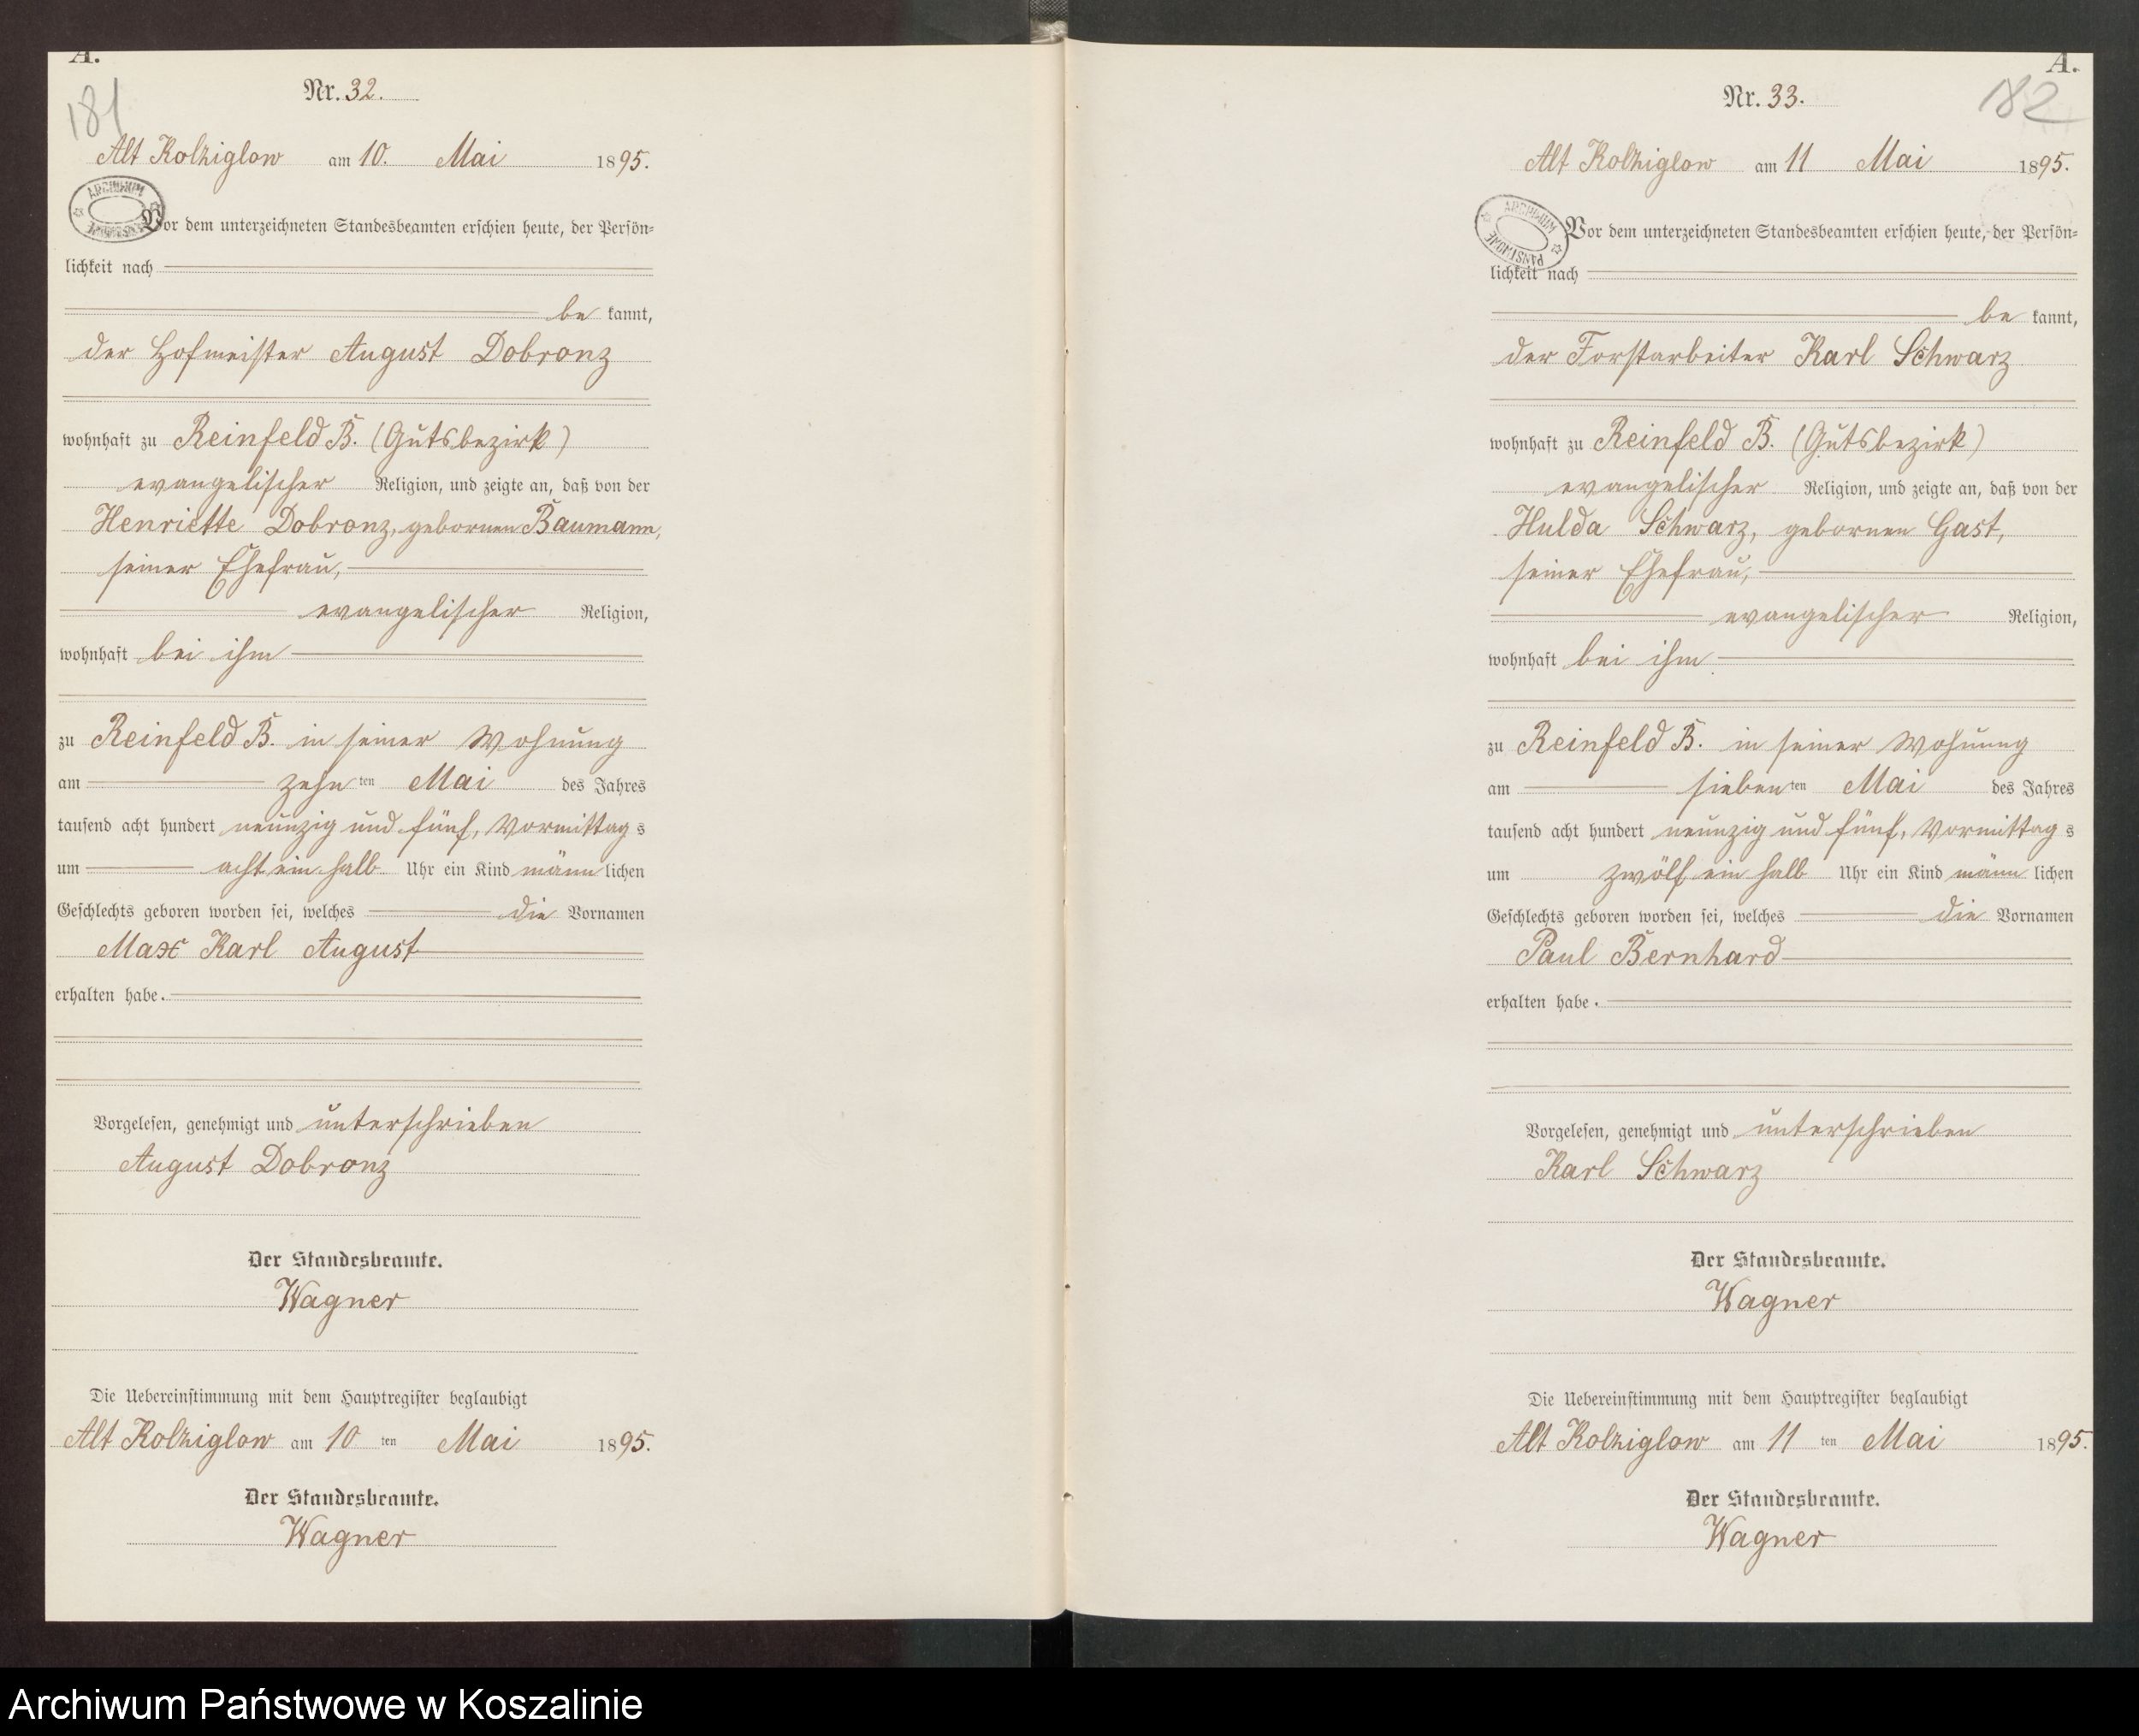 A.
181
Nr. 32.
Alt Kolziglow am 10. Mai 1895.
ARCHIWUM
PAŃSTWOWE
Vor dem unterzeichneten Standesbeamten erschien heute, der Persön-
lichkeit nach
be kannt,
der Hofmeister August Dobronz
wohnhaft zu Reinfeld B. (Gutsbezirk)
evangelischer Religion, und zeigte an, daß von der
Henriette Dobronz, gebornen Baumann,
seiner Ehefrau,
evangelischer Religion,
wohnhaft bei ihm
zu Reinfeld B. in seiner Wohnung
am zehn ten Mai des Jahres
tausend acht hundert neunzig und fünf, Vormittag s
um acht ein halb Uhr ein Kind männ lichen
Geschlechts geboren worden sei, welches die Vornamen
Max Karl August
erhalten habe.
Vorgelesen, genehmigt und unterschrieben
August Dobronz
Der Standesbeamte.
Wagner
Die Uebereinstimmung mit dem Hauptregister beglaubigt
Alt Kolziglow am 10 ten Mai 1895.
Der Standesbeamte.
Wagner
A.
182
Nr. 33.
Alt Kolziglow am 11 Mai 1895.
ARCHIWUM
PAŃSTWOWE
Vor dem unterzeichneten Standesbeamten erschien heute, der Persön-
lichkeit nach
be kannt,
der Forstarbeiter Karl Schwarz
wohnhaft zu Reinfeld B. (Gutsbezirk)
evangelischer Religion, und zeigte an, daß von der
Hulda Schwarz, gebornen Gast,
seiner Ehefrau,
evangelischer Religion,
wohnhaft bei ihm
zu Reinfeld B. in seiner Wohnung
am sieben ten Mai des Jahres
tausend acht hundert neunzig und fünf, Vormittag s
um zwölf ein halb Uhr ein Kind männ lichen
Geschlechts geboren worden sei, welches die Vornamen
Paul Bernhard
erhalten habe.
Vorgelesen, genehmigt und unterschrieben
Karl Schwarz
Der Standesbeamte.
Wagner
Die Uebereinstimmung mit dem Hauptregister beglaubigt
Alt Kolziglow am 11 ten Mai 1895.
Der Standesbeamte.
Wagner
Archiwum Państwowe w Koszalinie